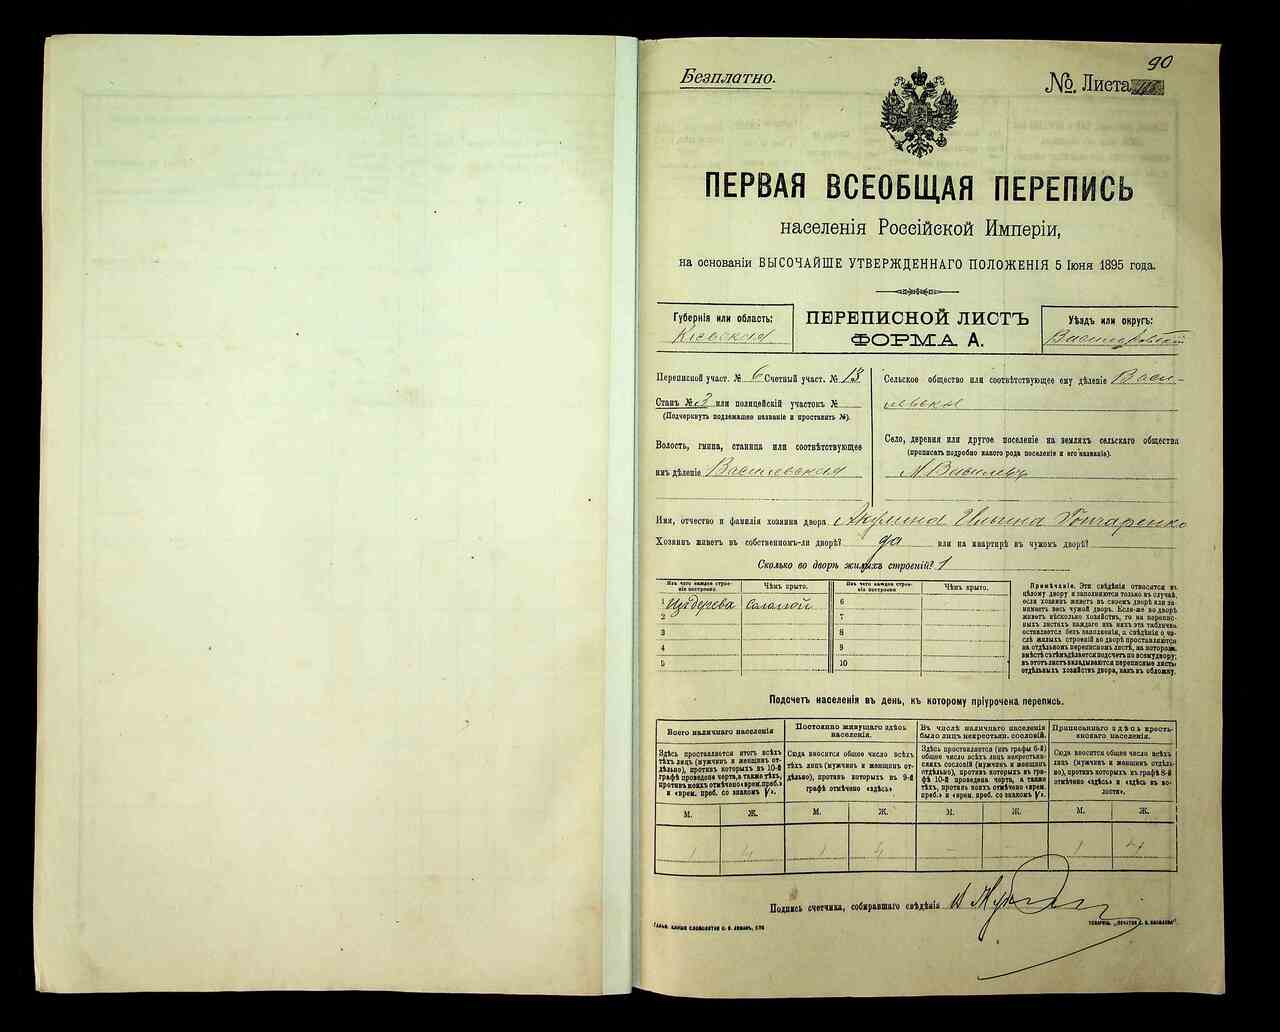 90
Безплатно.
№ Листа
ПЕРВАЯ ВСЕОБЩАЯ ПЕРЕПИСЬ
населенія Россійской Имперіи,
на основаніи ВЫСОЧАЙШЕ УТВЕРЖДЕННАГО ПОЛОЖЕНІЯ 5 Іюня 1895 года.
Губернія или область:
Кіевская
ПЕРЕПИСНОЙ ЛИСТЪ
ФОРМА А.
Уѣздъ или округъ:
Васильковскій
Переписной участ. № 6 Счетный участ. № 13
Станъ № 3 или полицейскій участокъ №
(Подчеркнуть подлежащее названіе и проставить №).
Волость, гмина, станица или соотвѣтствующее
имъ дѣленіе Василевская
Сельское общество или соотвѣтствующее ему дѣленіе Васи-
левское
Село, деревня или другое поселеніе на земляхъ сельскаго общества
(прописать подробно какого рода поселеніе и его названіе).
М. Василевъ
Имя, отчество и фамилія хозяина двора Акулина Ильина Гончаренко
Хозяинъ живетъ въ собственномъ-ли дворѣ? да или на квартирѣ въ чужомъ дворѣ?
Сколько во дворѣ жилыхъ строеній? 1
Изъ чего каждое строеніе построено.
Чѣмъ крыто.
Изъ чего каждое строеніе построено.
Чѣмъ крыто.
1 Изъ дерева соломой 6
2 7
3 8
4 9
5 10
Примѣчаніе. Эти свѣдѣнія относятся къ
цѣлому двору и заполняются только въ случаѣ,
если хозяинъ живетъ въ своемъ дворѣ или за-
нимаетъ весь чужой дворъ. Если-же во дворѣ
живетъ нѣсколько хозяйствъ, то на перепис-
ныхъ листахъ каждаго изъ нихъ эта табличка
оставляется безъ заполненія, а свѣдѣнія о чи-
слѣ жилыхъ строеній во дворѣ проставляются
на отдѣльномъ переписномъ листѣ, на которомъ
вмѣстѣ съ тѣмъ дѣлается подсчетъ по всему двору;
въ этотъ листъ вкладываются переписные листы
отдѣльныхъ хозяйствъ двора, какъ въ обложку.
Подсчетъ населенія въ день, къ которому пріурочена перепись.
Всего наличнаго населенія
Постоянно живущаго здѣсь
населенія.
Въ числѣ наличнаго населенія
было лицъ некрестьян. сословій.
Приписаннаго здѣсь кресть-
янскаго населенія.
Здѣсь проставляется итогъ всѣхъ
тѣхъ лицъ (мужчинъ и женщинъ от-
дѣльно), противъ которыхъ въ 10-й
графѣ проведена черта, а также тѣхъ,
противъ коихъ отмѣчено «врем. преб.»
и «врем. преб. со знакомъ V».
Сюда вносится общее число всѣхъ
тѣхъ лицъ (мужчинъ и женщинъ от-
дѣльно), противъ которыхъ въ 9-й
графѣ отмѣчено «здѣсь»
Здѣсь проставляется (изъ графы 6-й)
общее число всѣхъ лицъ некрестьян-
скихъ сословій (мужчинъ и женщинъ
отдѣльно), противъ которыхъ въ гра-
фѣ 10-й проведена черта, а также
тѣхъ, противъ коихъ отмѣчено «врем.
преб.» и «врем. преб. со знакомъ V».
Сюда вносится общее число всѣхъ
лицъ (мужчинъ и женщинъ отдѣль-
но), противъ которыхъ въ графѣ 8-й
отмѣчено «здѣсь» и «здѣсь въ во-
лости».
М. Ж. М. Ж. М. Ж. М. Ж.
1 4 1 4 - - 1 4
Подпись счетчика, собиравшаго свѣдѣнія